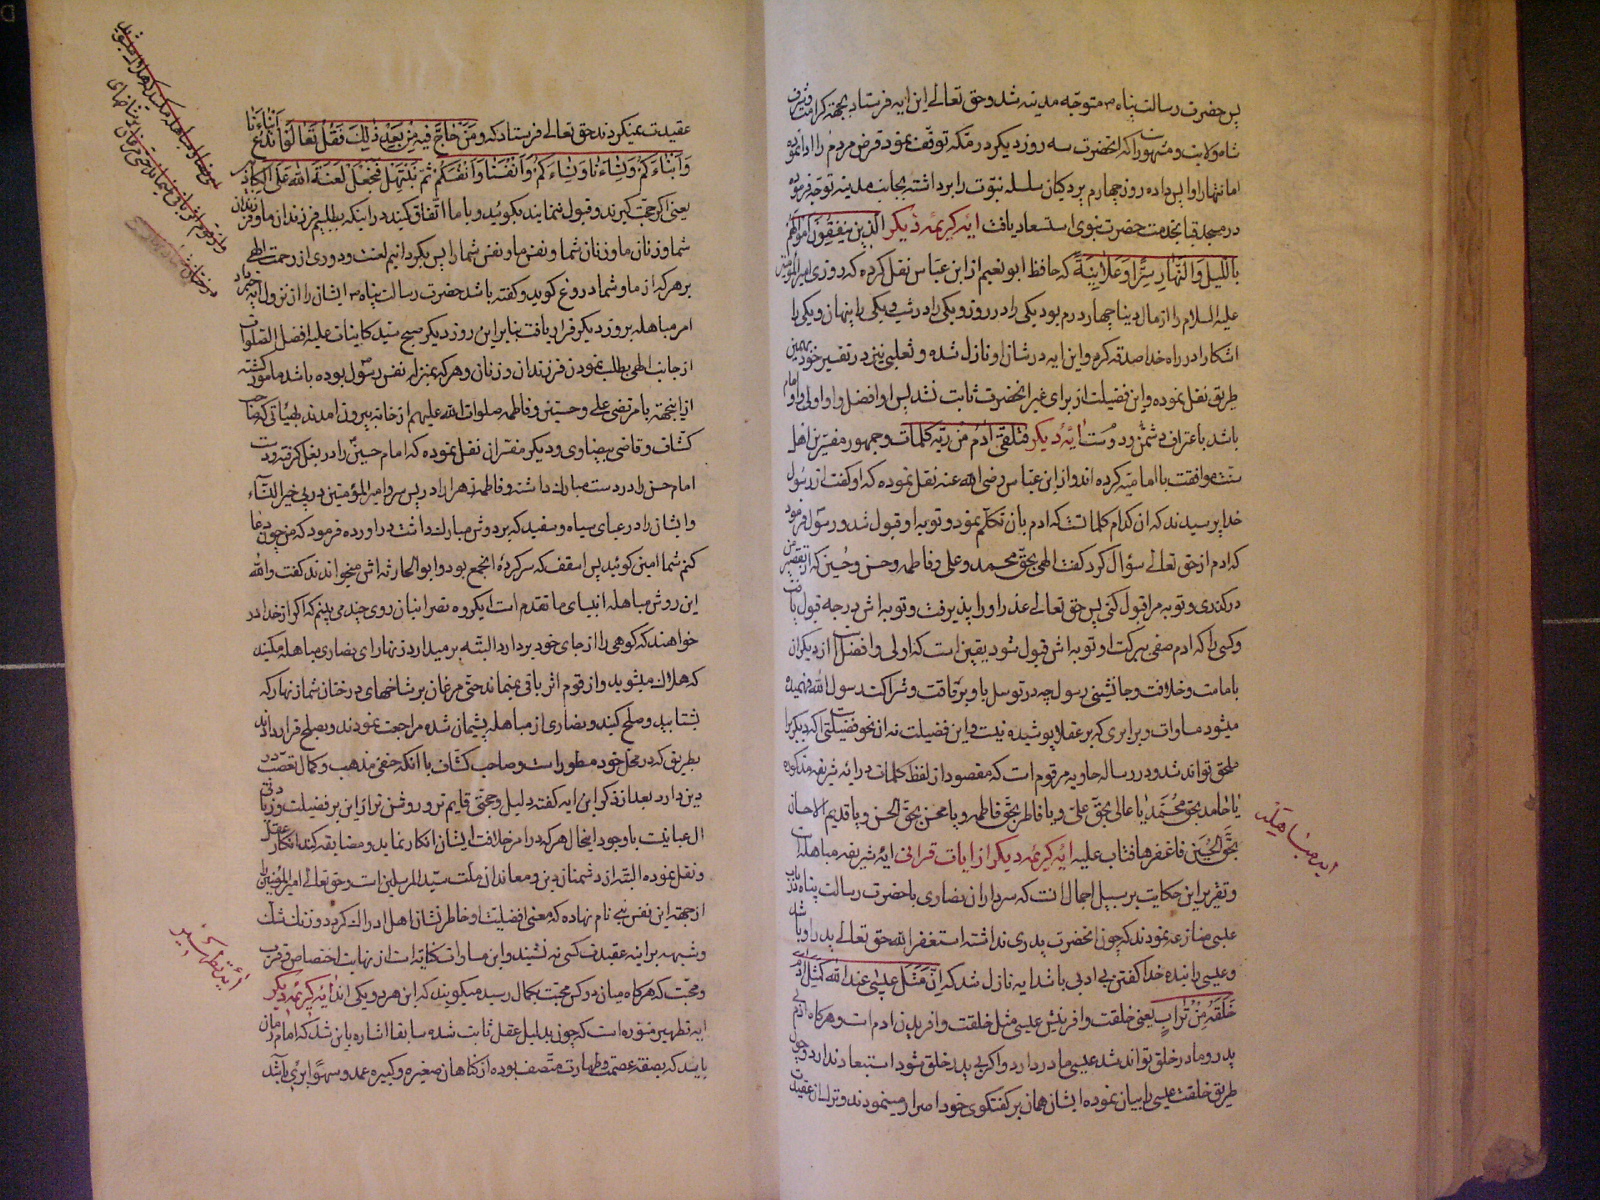 پس حضرت رسالت پناه ص متوجه مدینه شد و حق تعالی این ایه فرستاد بجهته کرامت و شرف
شاه ولایت و مشهور که انحضرت سه روز دیکر در مکه توقف نمود و قرض مردم را ادا نموده
امانتها را واپس داده روز چهارم بردکیان سلسله نبوت را برداشته بجانب مدینه توجه فرموده
در مسجد قبا بخدمت حضرت نبوی استسعاد یافت ایه کریمه دیکر الذین ینفقون اموالهم
باللیل والنهار سرا وعلانیة که حافظ ابو نعیم از ابن عباس نقل کرده که روزی امیرالمؤمنین
علیه السلام را از مال دنیا چهار درم بود یکی را در روز و یکی را در شب و یکی را پنهان و یکی را
اشکارا در راه خدا صدقه کرم و این ایه در شان او نازل شده و ثعلبی نیز در تفسیر خود بهمین
طریق نقل نموده و این فضیلت از برای غیر انحضرت ثابت نشد پس او افضل و اولی و امام
باشد باعتراف دشمن و دوست ایه دیکر فتلقی ادم من ربه کلمات و جمهور مفسرین اهل
سنت موافقت با امامیه کرده اند و از ابن عباس رضی الله عنه نقل نموده که او کفت از رسول
خدا پرسیدند که ان کدام کلماتست که ادم بان تکلم نمود و توبه او قبول شد و رسول فرمود
که ادم از حق تعالی سؤال کرد کفت الهی بحق محمد و علی و فاطمه و حسن و حسین که از تقصیر من
درکذری و توبه مرا قبول کنی پس حق تعالی عذر او را پذیرفت و توبه اش بدرجه قبول یافت
و کسی را که ادم صفی ببرکت او توبه اش قبول شود یقین است که اولی و افضل از دیکران
بامامت و خلافت و جانشینی رسول چه در توسل باو برفاقت و شراکت رسول الله فهمیده
میشود مساوات و برابری که بر عقلا پوشیده نیست و این فضیلت نه ان نحو فضیلتی است که دیکر برا
ملحق تواند شد و در رساله حاویه مرقوم است که مقصود از لفظ کلمات در ایه شریفه مذکوره
یا حامد بحق محمد یا عالی بحق علی و یا فاطر بحق فاطمه و یا محسن بحق الحسن و یا قدیم الاحسان
بحق الحسین فاغفرها فتاب علیه ایه کریمه دیکر از ایات قرانی ایه شریفه مباهله است
و تقریر این حکایت بر سبیل اجمال انست که سرداران نصاری با حضرت رسالت پناه در باب
عیسی منازعه نمودند که چون انحضرت پدری نداشته استغفر الله حق تعالی پدر او باشد
و عیسی را بنده خدا کفتن بی ادبی باشد ایه نازل شد که ان مثل عیسی عند الله کمثل ادم
خلقه من تراب یعنی خلقت و افرینش عیسی مثل خلقت و افریدن ادم است و هرکاه ادم بی
پدر و مادر خلق تواند شد عیسی مادر دارد و اکر بی پدر خلق شود استبعاد ندارد و چون
طریق خلقت عیسی را بیان نموده ایشان همان بر کفتکوی خود اصرار مینمودند و ترک از عقیدت
ایه مباهله
عقیدت نمیکردند حق تعالی فرستاد که و من حاجک فیه من بعد ذلک فقل تعالوا ندع ابناءنا
وابناءکم ونساءنا ونساءکم وانفسنا وانفسکم ثم نبتهل فنجعل لعنة الله علی الکاذبین
یعنی اکر حجت کیرند و قبول ننمایند بکوئید و با ما اتفاق کنید در اینکه بطلبیم فرزندان ما و فرزندان
شما و زنان ما و زنان شما و نفس ما و نفس شما را پس بکردانیم لعنت و دوری از رحمت الهی
بر هر که از ما و شما دروغ کوید و کفته باشد حضرت رسالت پناه ص ایشان را از نزول ایه خبر داد
امر مباهله بروز دیکر قرار یافت بنابراین روز دیکر صبح سید کاینات علیه افضل الصلوات
از جانب الهی بطلب نمودن فرزندان و زنان و هر که بمنزله نفس رسول بوده باشد مامور کشته
از اینجهته با مرتضی علی و حسنین و فاطمه صلوات الله علیهم از خانه بیرون امدند بهیاتی که صاحب
کشاف و قاضی بیضاوی و دیکر مفسران نقل نموده که امام حسین را در بغل کرفته و دست
امام حسن را در دست مبارک داشته و فاطمه زهرا را در پس سر و امیرالمؤمنین در پی خیر النساء
و ایشان را در عبای سیاه و سفید که بر دوش مبارک داشت دراورده فرمود که من چون دعا
کنم شما امین کوئید پس اسقف که سرکرده انجمع بود و ابو الحارثه اش میخواندند کفت والله
این روش مباهله انبیای ما تقدم است ایکروه نصرانیان روی چند می بینم که اکر از خدا در
خواهند که کوهی را از جای خود بردارد البته بر میدارد زنهار ای نصاری مباهله مکنید
که هلاک میشوید و از قوم اثر باقی نمیماند حتی مرغان بر شاخهای درختان شما زنهار که
بشتابید و صلح کنید و نصاری از مباهله پشیمان شده مراجعت نمودند و بصلح قرار دادند
بطریق که در محل خود مسطور است و صاحب کشاف با انکه حنفی مذهب و کمال تعصب در
دین دارد بعد از ذکر این ایه کفته دلیل و حجتی قایم تر و روشن تر از این بر فضیلت و بزرکی
ال عبا نیست با وجود اینحال هر که در امر خلافت ایشان انکار نماید و مضایقه کند انکار عقل
و نقل نموده البته از دشمنان دین و معاندان ملت سید المرسلین است و حق تعالی امیرالمؤمنین را
از جهته این نفس نبی نام نهاده که معنی افضلیت او خاطرنشان اهل ادراک کردد و زنک شک
و شبهه بر اینه عقیدت کسی ننشیند و این مساوات کنایه است از نهایت اختصاص و قرب
و محبت که هرکاه میان دو کس محبت بکمال رسید میکویند که این هر دو یکی اند ایه کریمه دیکر
ایه تطهیر منوره است که چون بدلیل عقل ثابت شده سابقا اشاره باین شد که امام زمان
باید که بصفت عصمت و طهارت متصف بوده از کناهان صغیره و کبیره عمد و سهوا بری باشد
ایه تطهیر